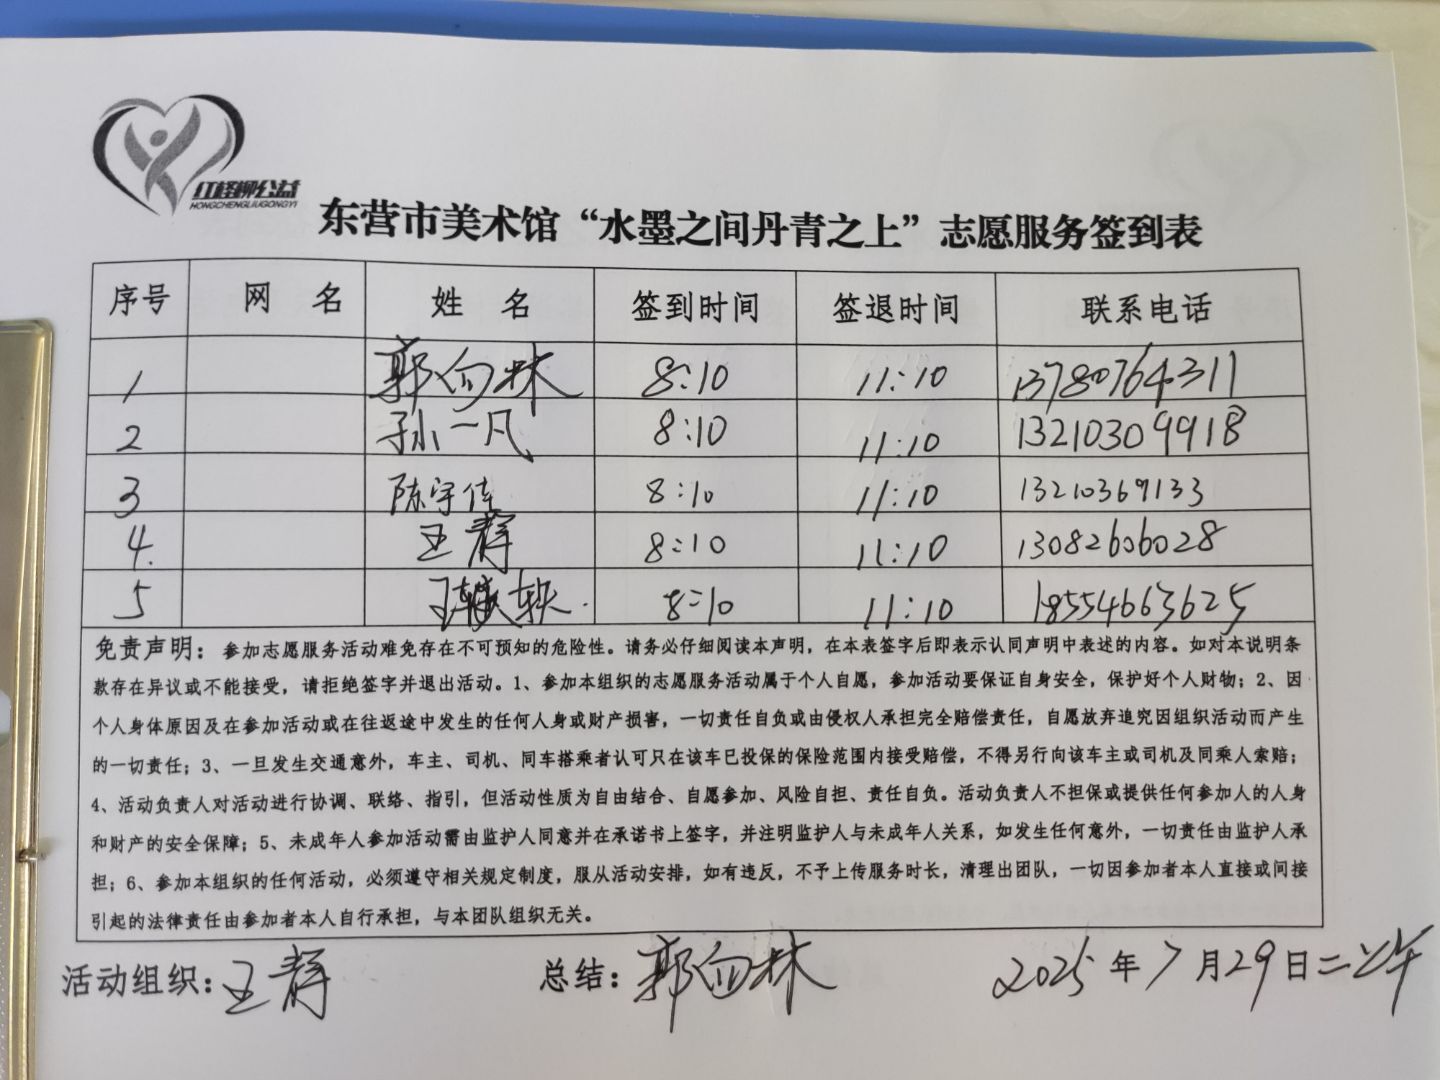 红柽柳公益
HONGCHENGLIUGONGYI
东营市美术馆“水墨之间丹青之上”志愿服务签到表
序号 网 名 姓 名 签到时间 签退时间 联系电话
1 郭向林 8:10 11:10 13780764311
2 孙一凡 8:10 11:10 13210309918
3 陈宇佳 8:10 11:10 13210369133
4. 王静 8:10 11:10 13082606028
5 王 8:10 11:10 18554663625
免责声明：参加志愿服务活动难免存在不可预知的危险性。请务必仔细阅读本声明，在本表签字后即表示认同声明中表述的内容。如对本说明条
款存在异议或不能接受，请拒绝签字并退出活动。1、参加本组织的志愿服务活动属于个人自愿，参加活动要保证自身安全，保护好个人财物；2、因
个人身体原因及在参加活动或在往返途中发生的任何人身或财产损害，一切责任自负或由侵权人承担完全赔偿责任，自愿放弃追究因组织活动而产生
的一切责任；3、一旦发生交通意外，车主、司机、同车搭乘者认可只在该车已投保的保险范围内接受赔偿，不得另行向该车主或司机及同乘人索赔；
4、活动负责人对活动进行协调、联络、指引，但活动性质为自由结合、自愿参加、风险自担、责任自负。活动负责人不担保或提供任何参加人的人身
和财产的安全保障；5、未成年人参加活动需由监护人同意并在承诺书上签字，并注明监护人与未成年人关系，如发生任何意外，一切责任由监护人承
担；6、参加本组织的任何活动，必须遵守相关规定制度，服从活动安排，如有违反，不予上传服务时长，清理出团队，一切因参加者本人直接或间接
引起的法律责任由参加者本人自行承担，与本团队组织无关。
活动组织：王静 总结：郭向林 2025年7月29日二上午